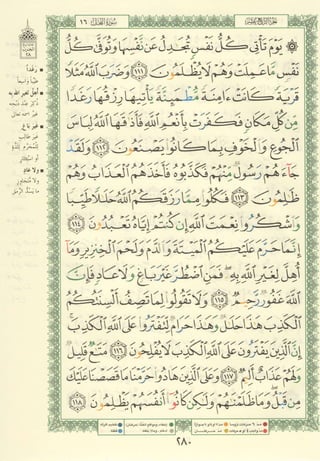 سورة النحل ١٦
۞ يَوْمَ تَأْتِي كُلُّ نَفْسٍ تُجَادِلُ عَن نَّفْسِهَا وَتُوَفَّىٰ كُلُّ
نَفْسٍ مَّا عَمِلَتْ وَهُمْ لَا يُظْلَمُونَ ١١١ وَضَرَبَ اللَّهُ مَثَلًا
قَرْيَةً كَانَتْ ءَامِنَةً مُّطْمَئِنَّةً يَأْتِيهَا رِزْقُهَا رَغَدًا
مِّن كُلِّ مَكَانٍ فَكَفَرَتْ بِأَنْعُمِ اللَّهِ فَأَذَاقَهَا اللَّهُ لِبَاسَ
الْجُوعِ وَالْخَوْفِ بِمَا كَانُوا يَصْنَعُونَ ١١٢ وَلَقَدْ
جَاءَهُمْ رَسُولٌ مِّنْهُمْ فَكَذَّبُوهُ فَأَخَذَهُمُ الْعَذَابُ وَهُمْ
ظَالِمُونَ ١١٣ فَكُلُوا مِمَّا رَزَقَكُمُ اللَّهُ حَلَالًا طَيِّبًا
وَاشْكُرُوا نِعْمَتَ اللَّهِ إِن كُنتُمْ إِيَّاهُ تَعْبُدُونَ ١١٤
إِنَّمَا حَرَّمَ عَلَيْكُمُ الْمَيْتَةَ وَالدَّمَ وَلَحْمَ الْخِنزِيرِ وَمَا
أُهِلَّ لِغَيْرِ اللَّهِ بِهِ ۖ فَمَنِ اضْطُرَّ غَيْرَ بَاغٍ وَلَا عَادٍ فَإِنَّ
اللَّهَ غَفُورٌ رَّحِيمٌ ١١٥ وَلَا تَقُولُوا لِمَا تَصِفُ أَلْسِنَتُكُمُ
الْكَذِبَ هَٰذَا حَلَالٌ وَهَٰذَا حَرَامٌ لِّتَفْتَرُوا عَلَى اللَّهِ الْكَذِبَ ۚ
إِنَّ الَّذِينَ يَفْتَرُونَ عَلَى اللَّهِ الْكَذِبَ لَا يُفْلِحُونَ ١١٦ مَتَاعٌ قَلِيلٌ
وَلَهُمْ عَذَابٌ أَلِيمٌ ١١٧ وَعَلَى الَّذِينَ هَادُوا حَرَّمْنَا مَا قَصَصْنَا عَلَيْكَ
مِن قَبْلُ ۖ وَمَا ظَلَمْنَاهُمْ وَلَٰكِن كَانُوا أَنفُسَهُمْ يَظْلِمُونَ ١١٨
٢٨٠